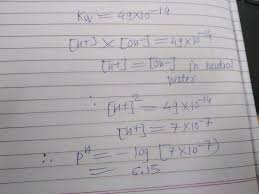 Kw = 49×10⁻¹⁴
[H+] × [OH-] = 49×10⁻¹⁴
[H+] = [OH-] in neutral
water
[H+]² = 49×10⁻¹⁴
[H+] = 7×10⁻⁷
∴ pH = -log [7×10⁻⁷)
= 6.15